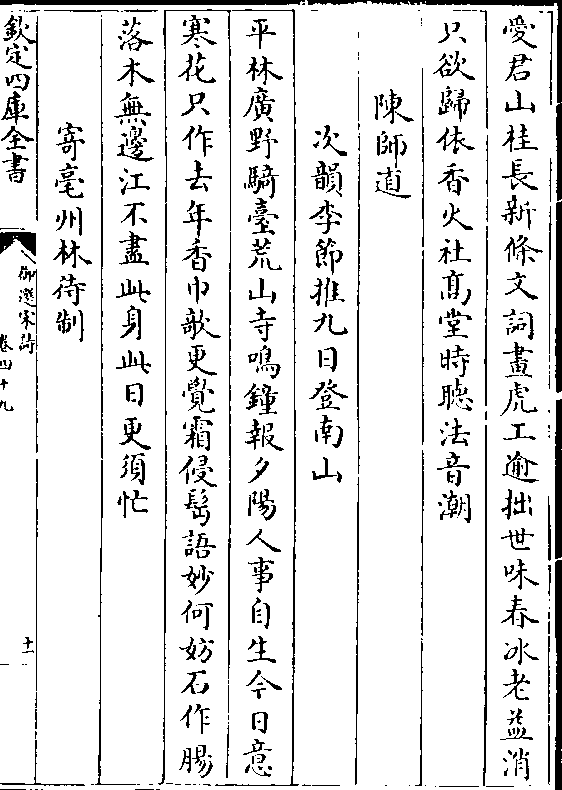 愛君山桂長新條文詞畫虎工逾拙世味春冰老益消
只欲歸依香火社髙堂時聽法音潮
陳師道
次韻李節推九日登南山
平林廣野騎臺荒山寺鳴鐘報夕陽人事自生今日意
寒花只作去年香巾欹更覺霜侵鬂語妙何妨石作腸
落木無邊江不盡此身此日更須忙
寄亳州林待制
欽定四庫全書
御選宋詩
卷四十九
十一